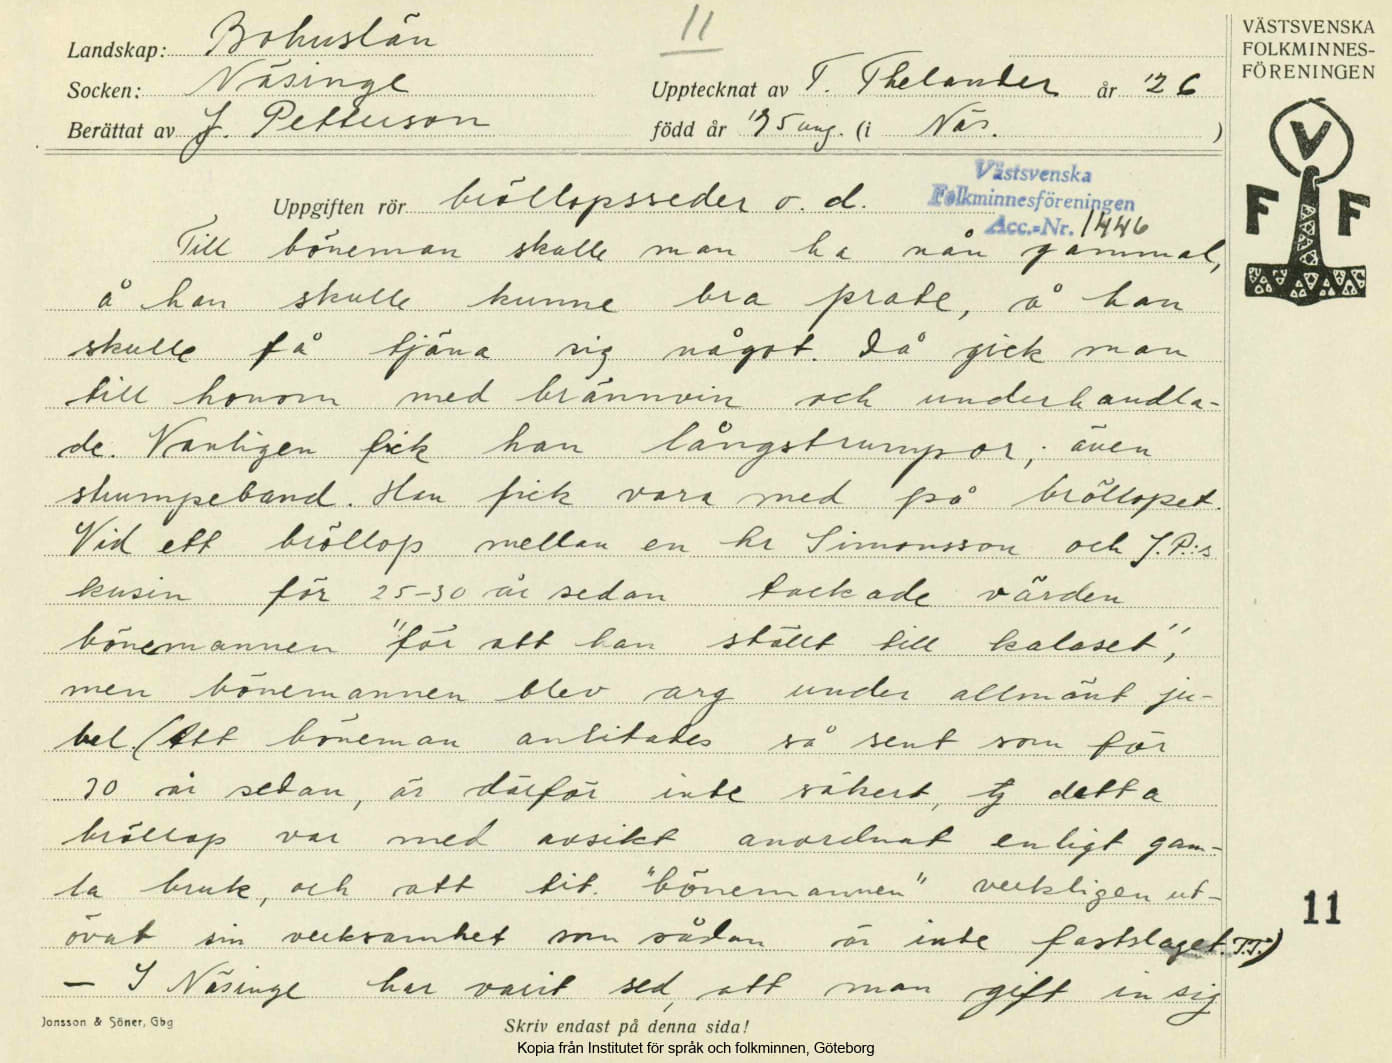 11
Landskap: Bohuslän
Socken: Näsinge
Upptecknat av T. Thelander år '26
Berättat av J. Pettersson
född år '75 ung. (i Näs. )
VÄSTSVENSKA
FOLKMINNES-
FÖRENINGEN
V
F F
Uppgiften rör bröllopsseder o. d.
Västsvenska
Folkminnesföreningen
Acc.-Nr. 1446
Till böneman skulle man ha nån gammal,
å han skulle kunne bra prate, å han
skulle få tjäna sig något. Då gick man
till honom med brännvin och underhandla-
de. Vanligen fick han långstrumpor, även
strumpeband. Han fick vara med på bröllopet.
Vid ett bröllop mellan en hr Simonsson och J.P.:s
kusin för 25-30 år sedan tackade värden
bönemannen "för att han ställt till kalaset",
men bönemannen blev arg under allmänt ju-
bel. (Att böneman anlitades så sent som för
30 år sedan, är därför inte säkert, ty detta
bröllop var med avsikt anordnat enligt gam-
la bruk, och att tit. "bönemannen" verkligen ut-
övat sin verksamhet som sådan är inte fastslaget. T.T.)
— I Näsinge har varit sed, att man gift in sig
11
Jonsson & Söner, Gbg
Skriv endast på denna sida!
Kopia från Institutet för språk och folkminnen, Göteborg